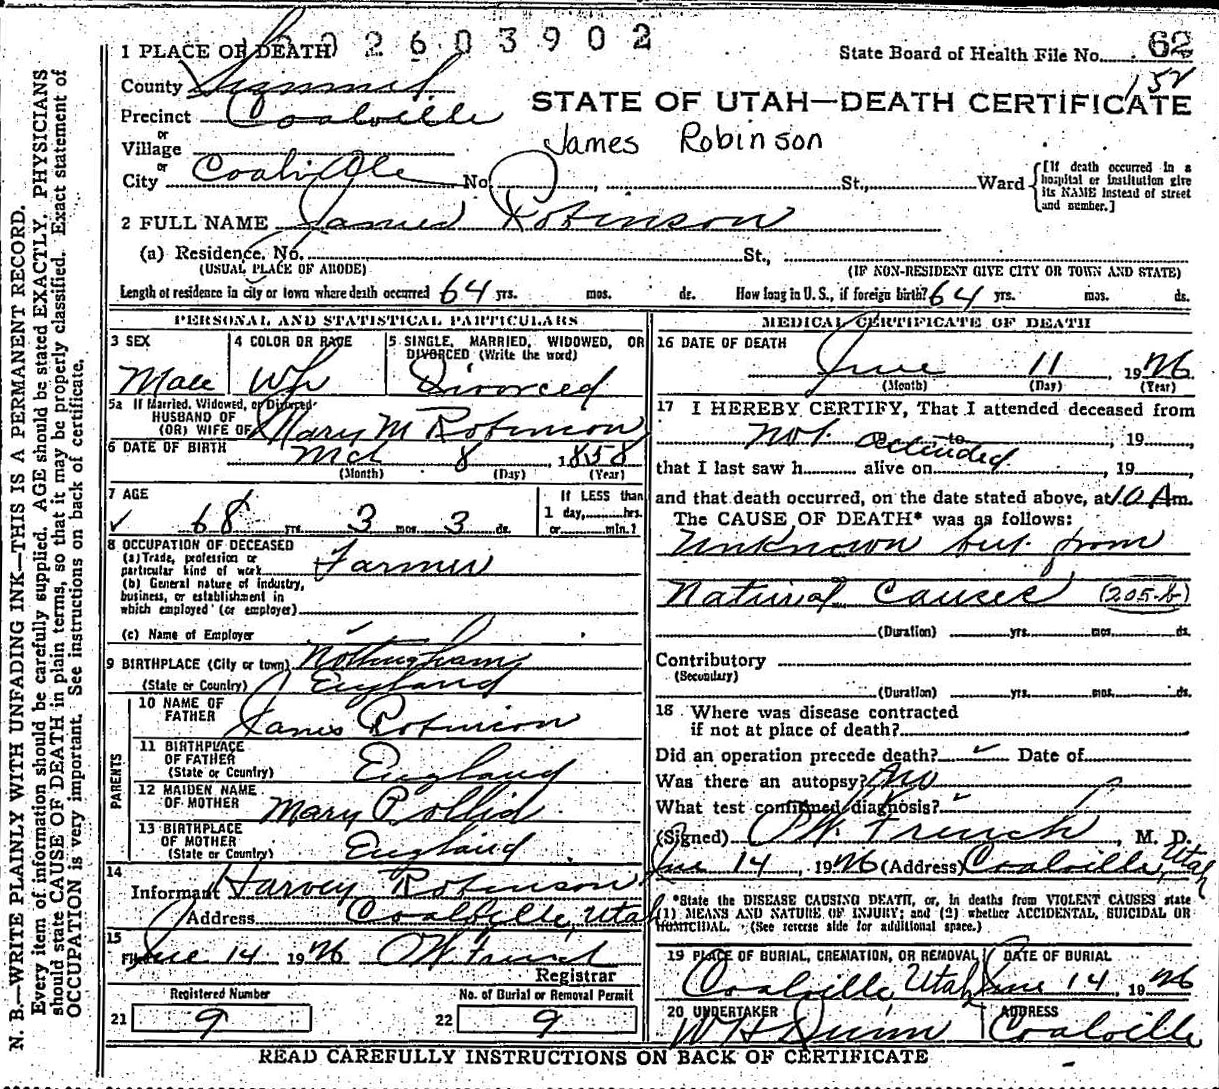 N. B.—WRITE PLAINLY WITH UNFADING INK—THIS IS A PERMANENT RECORD.
Every item of information should be carefully supplied. AGE should be stated EXACTLY. PHYSICIANS
should state CAUSE OF DEATH in plain terms, so that it may be properly classified. Exact statement of
OCCUPATION is very important. See instructions on back of certificate.
2603902
1 PLACE OF DEATH
State Board of Health File No. 62
152
County Summit
STATE OF UTAH—DEATH CERTIFICATE
Precinct Coalville
James Robinson
or
Village
or
City Coalville No. St., Ward
[If death occurred in a hospital or institution give its NAME instead of street and number.]
2 FULL NAME James Robinson
(a) Residence. No. St.,
(USUAL PLACE OF ABODE) (IF NON-RESIDENT GIVE CITY OR TOWN AND STATE)
Length of residence in city or town where death occurred 64 yrs. mos. ds. How long in U.S., if foreign birth? 64 yrs. mos. ds.
PERSONAL AND STATISTICAL PARTICULARS
3 SEX
Male
4 COLOR OR RACE
Wh
5 SINGLE, MARRIED, WIDOWED, OR
DIVORCED (Write the word)
Divorced
5a If Married, Widowed, or Divorced
HUSBAND OF
(OR) WIFE OF Mary M Robinson
6 DATE OF BIRTH Mch 8, 1858
(Month) (Day) (Year)
7 AGE
68 yrs. 3 mos. 3 ds.
If LESS than
1 day, hrs.
or min.?
8 OCCUPATION OF DECEASED
(a) Trade, profession or
particular kind of work Farmer
(b) General nature of industry,
business, or establishment in
which employed (or employer)
(c) Name of Employer
9 BIRTHPLACE (City or town) Nottingham
(State or Country) England
PARENTS
10 NAME OF
FATHER James Robinson
11 BIRTHPLACE
OF FATHER
(State or Country) England
12 MAIDEN NAME
OF MOTHER Mary
13 BIRTHPLACE
OF MOTHER
(State or Country) England
14
Informant Harvey Robinson
Address Coalville, Utah
15
Filed June 14 1926 French
Registrar
Registered Number
21 9
No. of Burial or Removal Permit
22 9
MEDICAL CERTIFICATE OF DEATH
16 DATE OF DEATH
June 11 1926
(Month) (Day) (Year)
17 I HEREBY CERTIFY, That I attended deceased from
not attended to , 19 ,
that I last saw h alive on , 19 ,
and that death occurred, on the date stated above, at 10 A m.
The CAUSE OF DEATH* was as follows:
Unknown but from
Natural Causes (205-b)
(Duration) yrs. mos. ds.
Contributory
(Secondary)
(Duration) yrs. mos. ds.
18 Where was disease contracted
if not at place of death?
Did an operation precede death? Date of
Was there an autopsy? no
What test confirmed diagnosis?
(Signed) French, M. D.
June 14, 1926 (Address) Coalville, Utah
*State the DISEASE CAUSING DEATH, or, in deaths from VIOLENT CAUSES state
(1) MEANS AND NATURE OF INJURY; and (2) whether ACCIDENTAL, SUICIDAL OR
HOMICIDAL. (See reverse side for additional space.)
19 PLACE OF BURIAL, CREMATION, OR REMOVAL
Coalville, Utah
DATE OF BURIAL
June 14, 1926
20 UNDERTAKER
W H Dunn
ADDRESS
Coalville
READ CAREFULLY INSTRUCTIONS ON BACK OF CERTIFICATE